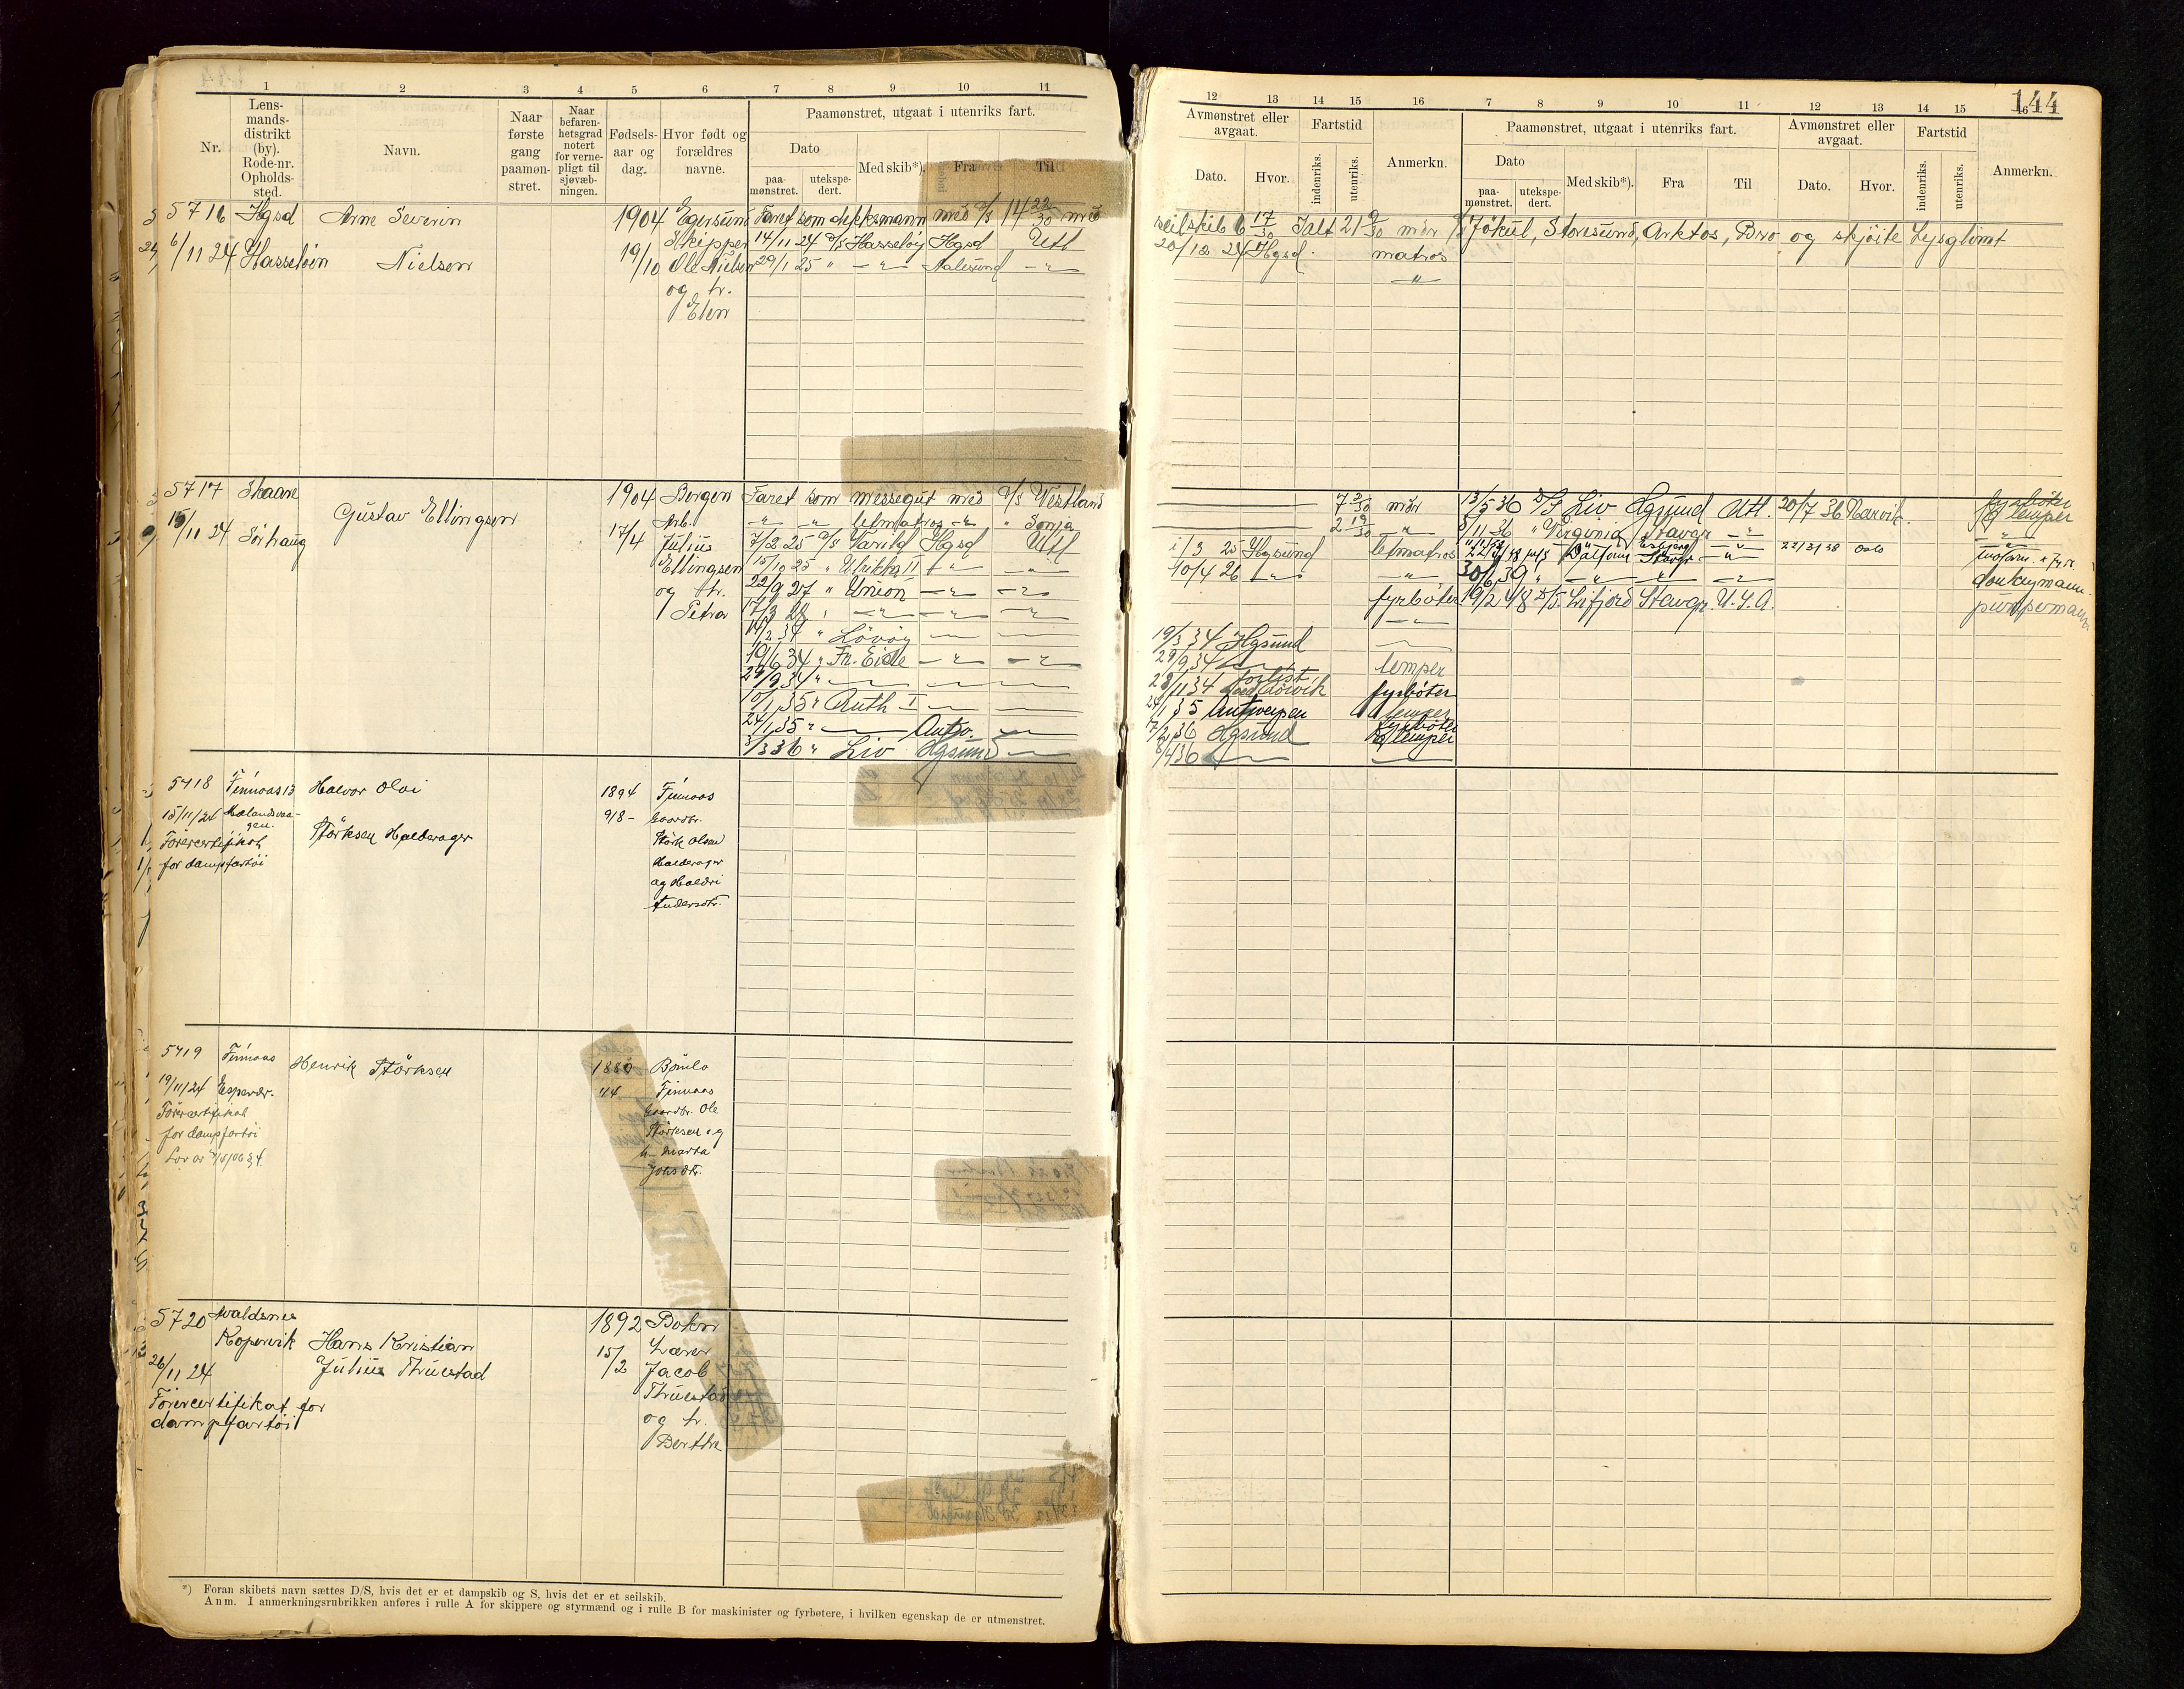 1 2 3 4 5 6 7 8 9 10 11
Nr.
Lens-
mands-
distrikt
(by).
Rode-nr.
Opholds-
sted.
Navn.
Naar
første
gang
paamøn-
stret.
Naar
befaren-
hetsgrad
notert
for verne-
pligt til
sjøvæb-
ningen.
Fødsels-
aar og
dag.
Hvor født og
forældres
navne.
Paamønstret, utgaat i utenriks fart.
Dato
paa-
mønstret.
utekspe-
dert.
Med skib*).
Fra
Til
12 13 14 15 16 7 8 9 10 11 12 13 14 15 16
144
Avmønstret eller
avgaat.
Dato.
Hvor.
Fartstid
indenriks.
utenriks.
Anmerkn.
Paamønstret, utgaat i utenriks fart.
Dato
paa-
mønstret.
utekspe-
dert.
Med skib*).
Fra
Til
Avmønstret eller
avgaat.
Dato.
Hvor.
Fartstid
indenriks.
utenriks.
Anmerkn.
5716 Hgsd Arne Severin 1904 Egersund Faret som dekksmann med D/S 14 22/30 med
seilskib 6 17/30 Ialt 21 9/30 mdr Jökul, Storesund, Arktos, Bro og skjöite Lysglimt
6/11 24 Hasseløin Nielsen 19/10 Skipper 14/11 24 D/S Hasseløy Hgsd Utl 20/12 24 Hgsd. matros
Ole Nielsen 29/1 25 " Aalesund
og h.
Elen
5717 Skaare Gustav Ellingsen 1904 Bergen Faret som messegut med D/S Vestland 7 2/30 mdr 13/5 36 D/S Liv Hgsund Utl. 20/7 36 Narvik. fyrbøter
lemper
15/11 24 Sörhaug 17/4 Arb. letmatros " Sonja 2 19/30 5/11 36 " Virginia Stavgr
Julius 7/2 25 D/S Varild Hgsd Utl 1/3 25 Hgsund letmatros 22/31 38 Oslo
Ellingsen 15/10 25 " Ulrikka II 10/4 26 30/6 39 donkeymann.
og h. 22/9 27 " Union fyrbøter 19/2 48 D/S. Lifjord Stavgr. U.S.A. pumpemann
Petra 17/3 28
14/2 34 " Lövöy 19/3 34 Hgsund
19/6 34 " Fr. Eide 29/9 34 lemper
29/9 34 " 28/11 34 forlist fyrbøter
10/1 35 " Ruth I 24/1 35 Antwerpen lemper
24/1 35 " Antw. 17/2 36 Hgsund fyrbøter
lemper
3/3 36 " Liv Hgsund 8/4 36
5718 Finnaas 13 Halvor Olai 1894 Finnaas
15/11/24 Mælandsvaa-
gen. Störksen Halderager 9/8- Gaardbr.
Förercertifikat Störk Olsen
for dampfartöi Halderager
og Haldri
Andersdtr.
5719 Finnaas Henrik Störksen 1880 Bömlo
19/11/24 Espevær. 4/4 Finnaas
Förercertifikat Gaardbr. Ole
for dampfartöi Störksen og
h. Marta
Johsdtr.
5720 Avaldsnes 1892 Bokn
Kopervik Hans Kristian 15/2 Lærer
26/11 24 Julius Thuestad Jacob
Förercertifikat for Thuestad
dampfartöi og h.
Berthe
*) Foran skibets navn sættes D/S, hvis det er et dampskib og S, hvis det er et seilskib.
Anm. I anmerkningsrubrikken anføres i rulle A for skippere og styrmænd og i rulle B for maskinister og fyrbøtere, i hvilken egenskap de er utmønstret.